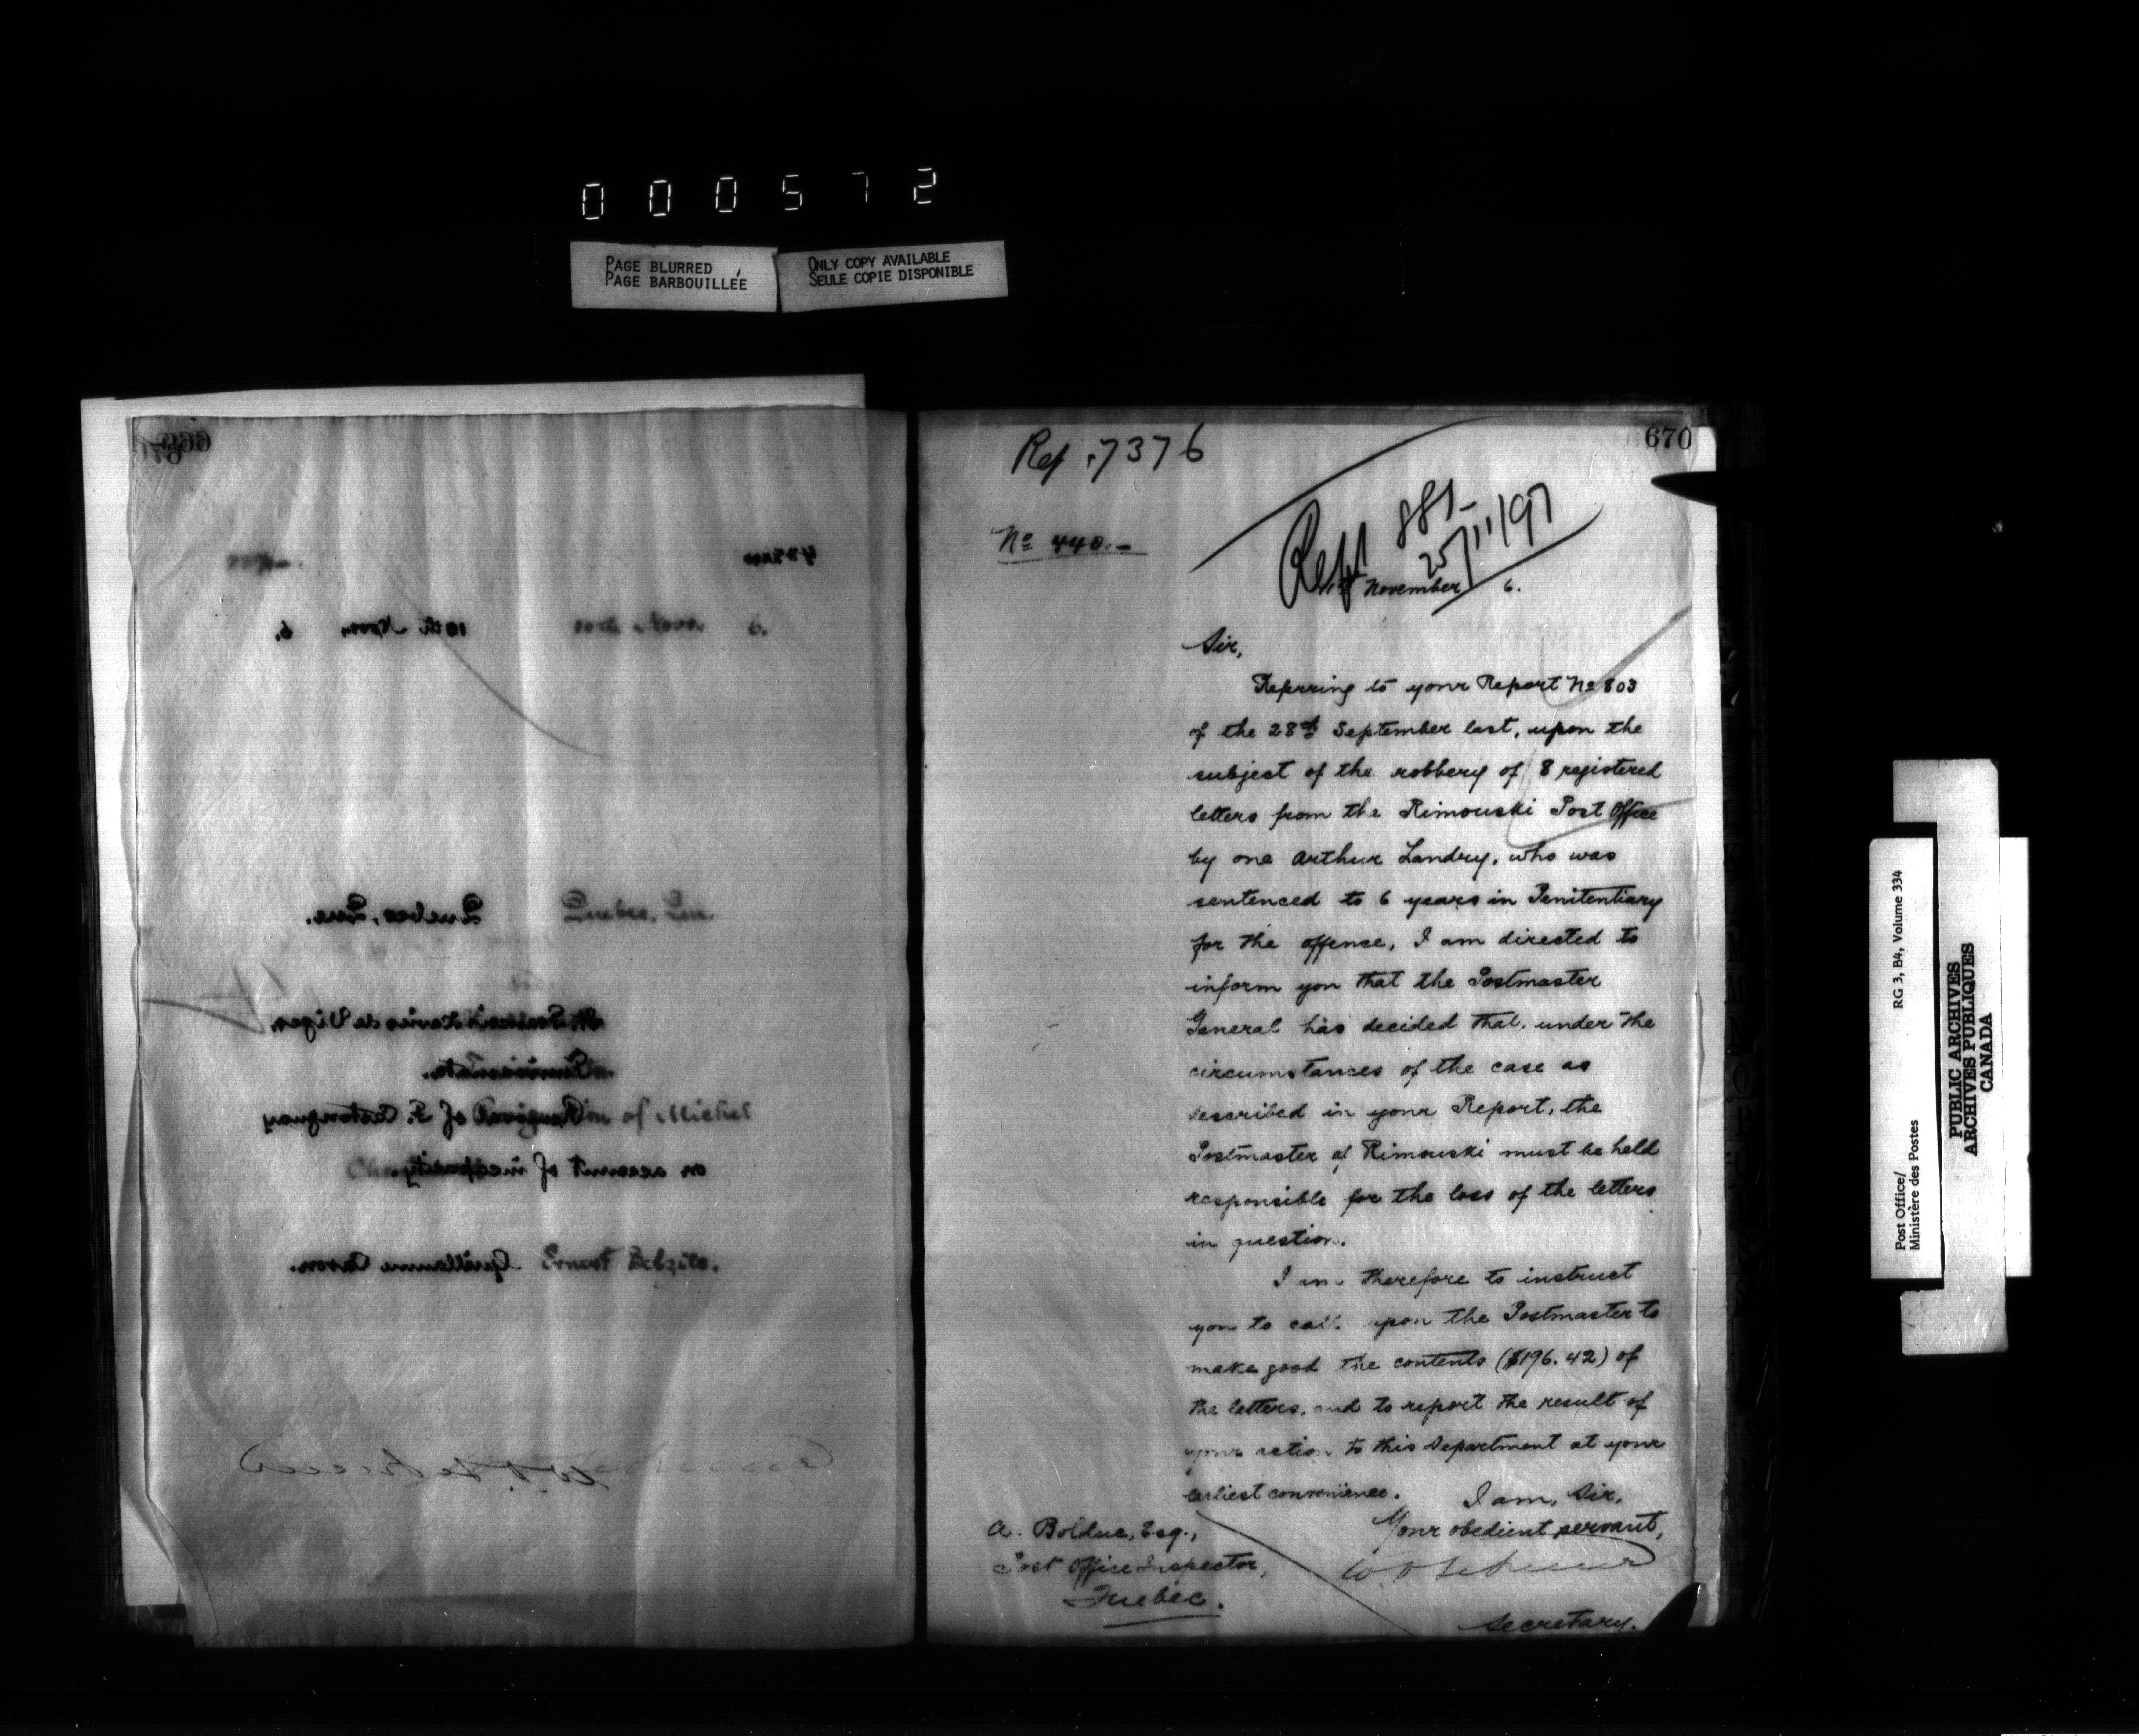 000572
PAGE BLURRED
PAGE BARBOUILLÉE
ONLY COPY AVAILABLE
SEULE COPIE DISPONIBLE
669
6.
10th Novr
6.
Quebec, Que.
Quebec, Que.
of Michel
on account of incapacity
Guillaume Caron.
Ernest
670
Ref. 7376
No 440.-
Rept 881-
25/11/97
November 6.
Sir,
Referring to your Report No 803
of the 28th September last, upon the
subject of the robbery of 8 registered
letters from the Rimouski Post Office
by one Arthur Landry, who was
sentenced to 6 years in Penitentiary
for the offence, I am directed to
inform you that the Postmaster
General has decided that, under the
circumstances of the case as
described in your Report, the
Postmaster of Rimouski must be held
responsible for the loss of the letters
in question.
I am therefore to instruct
you to call upon the Postmaster to
make good the contents ($196.42) of
the letters, and to report the result of
your action to this Department at your
earliest convenience.
I am, Sir,
Your obedient servant,
Secretary.
A. Bolduc, Esq.,
Post Office Inspector,
Quebec.
Post Office/
Ministère des Postes
RG 3, B4, Volume 334
PUBLIC ARCHIVES
ARCHIVES PUBLIQUES
CANADA